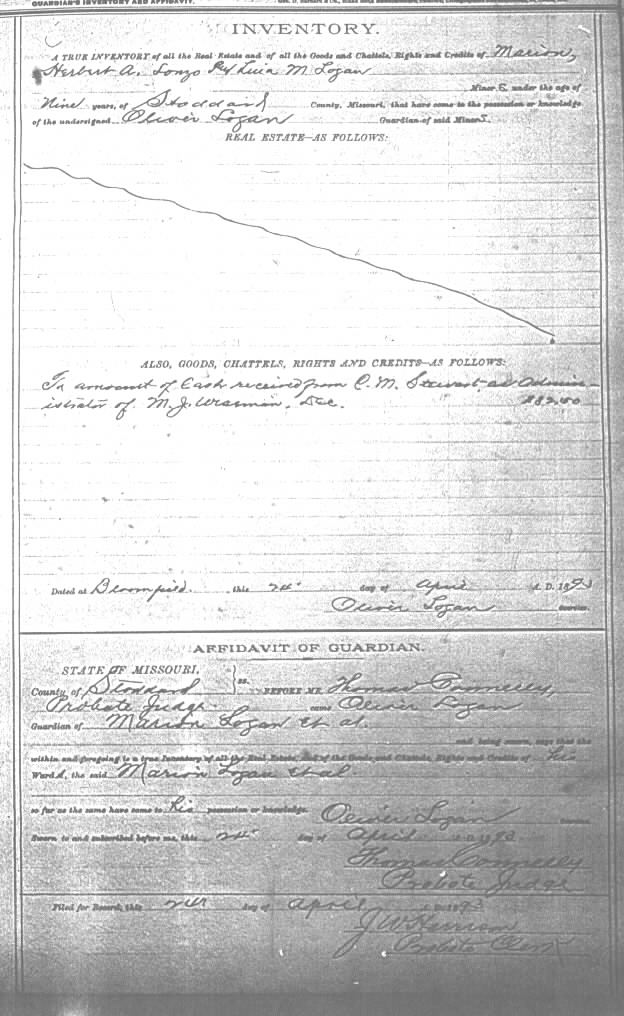 GUARDIAN'S INVENTORY AND AFFIDAVIT.
INVENTORY.
A TRUE INVENTORY of all the Real Estate and of all the Goods and Chattels, Rights and Credits of Marion,
Herbert A. Lonzo Rex Luia M Logan
Minor S. under the age of
Nine years, of Stoddard County, Missouri, that have come to the possession or knowledge
of the undersigned Oliver Logan Guardian of said Minor S.
REAL ESTATE—AS FOLLOWS:
ALSO, GOODS, CHATTELS, RIGHTS AND CREDITS—AS FOLLOWS:
In amount of Cash received from C. M. Stewart as Admin-
istrator of M. J. Dec. $82.50
Dated at Bloomfield. this 24" day of April A. D. 1893
Oliver Logan Guardian.
AFFIDAVIT OF GUARDIAN.
STATE OF MISSOURI,
County of Stoddard ss. BEFORE ME, Thomas Connelly,
Probate Judge came Oliver Logan
Guardian of Marion Logan et al.
and being sworn, says that the
within and foregoing is a true Inventory of all the Real Estate, and of the Goods and Chattels, Rights and Credits of his
Ward s, the said Marion Logan et al
so far as the same have come to his possession or knowledge. Oliver Logan Guardian.
Sworn to and subscribed before me, this 24" day of April 1893
Thomas Connelly
Probate Judge
Filed for Record, this 24th day of April A. D. 1893
J W Harrison
Probate Clerk